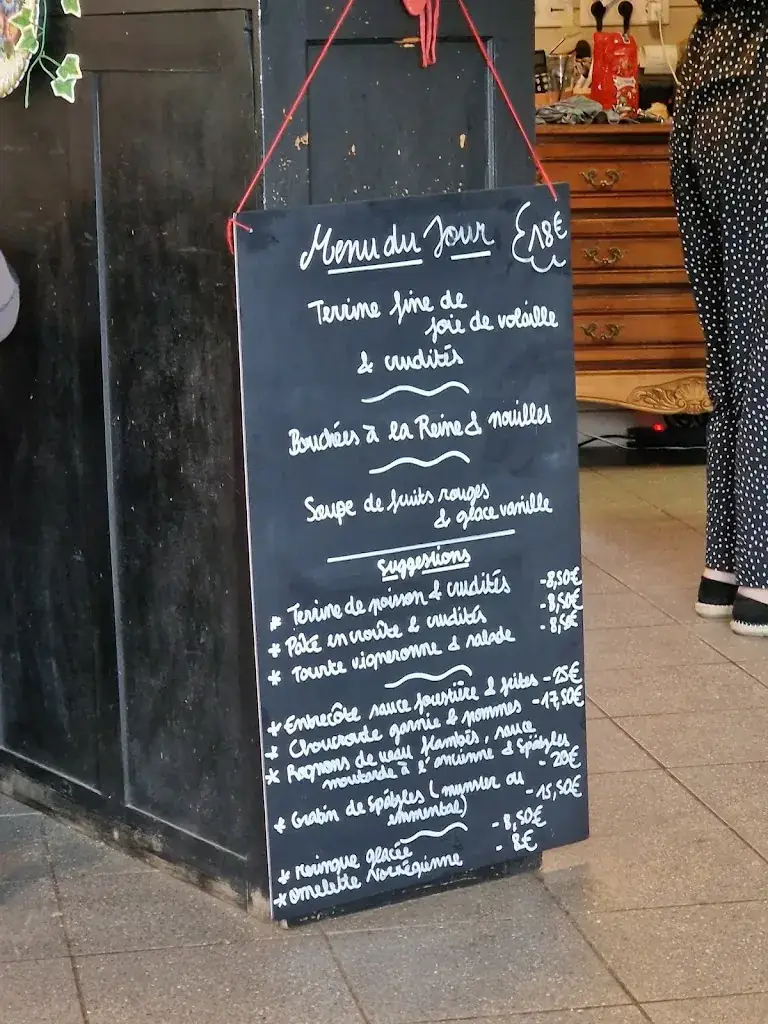 Menu du Jour 18€
Terrine fine de
foie de volaille
& crudités
Bouchées à la Reine & nouilles
Soupe de fruits rouges
& glace vanille
Suggestions
* Terrine de poisson & crudités -8,50€
* Pâté en croûte & crudités -8,50€
* Tourte vigneronne & salade -8,50€
* Entrecôte sauce forestière & frites -25€
* Choucroute garnie & pommes -17,50€
* Rognons de veau flambés, sauce
moutarde à l'ancienne & Spätzles
- 20€
* Gratin de Spätzles (munster ou
emmental) - 15,50€
* Meringue glacée - 8,50€
* Omelette Norvégienne - 8€